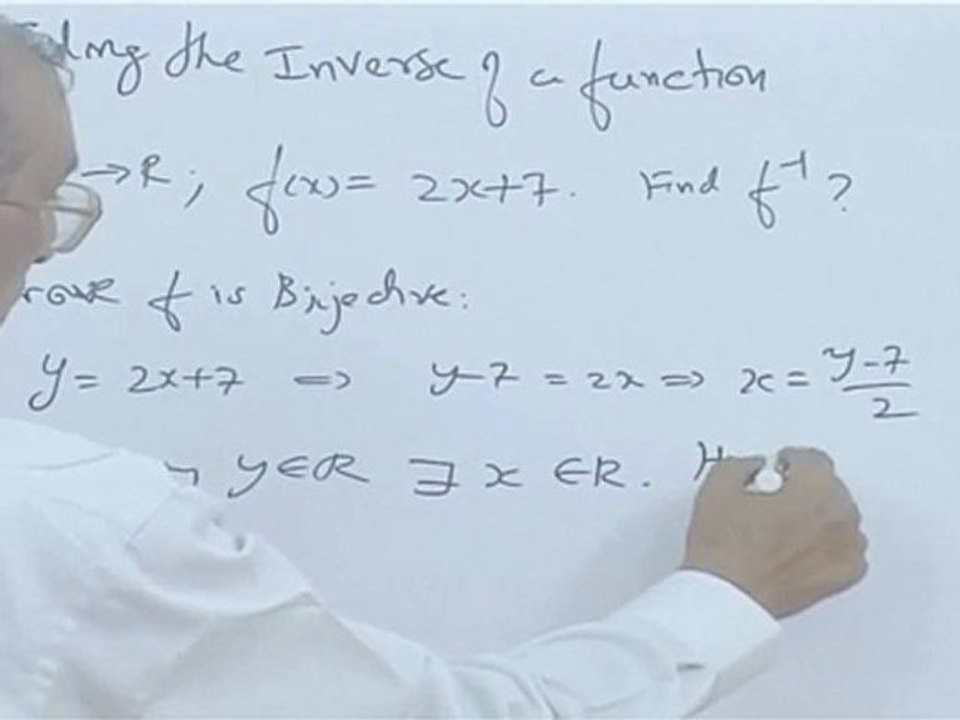 the Inverse of a function
→R; f(x)= 2x+7. Find f⁻¹?
f is Bijective:
y= 2x+7 => y-7 = 2x => x = (y-7)/2
y∈R ∃ x ∈R.